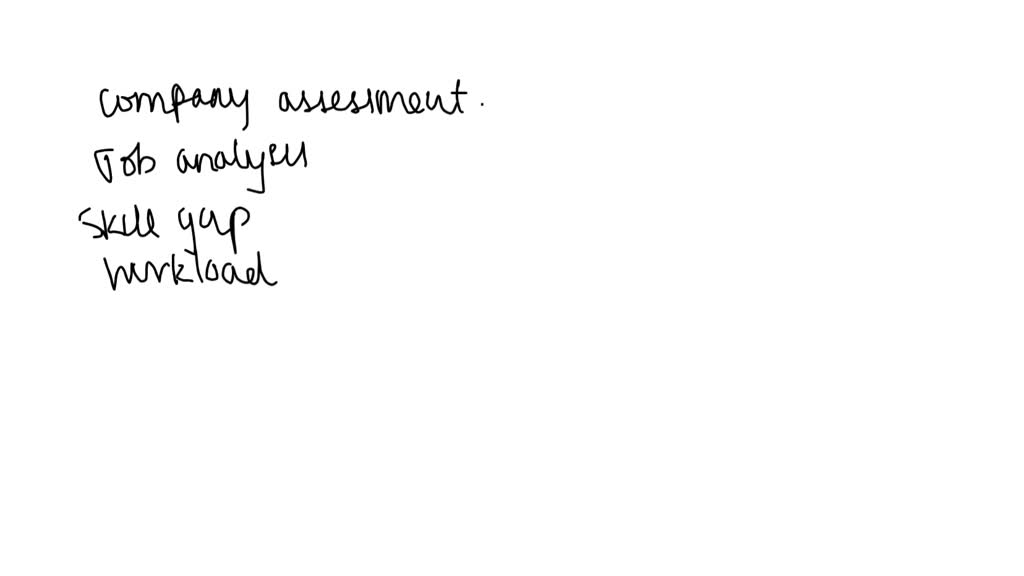 company assessment.
Job analysis
Skill gap
workload